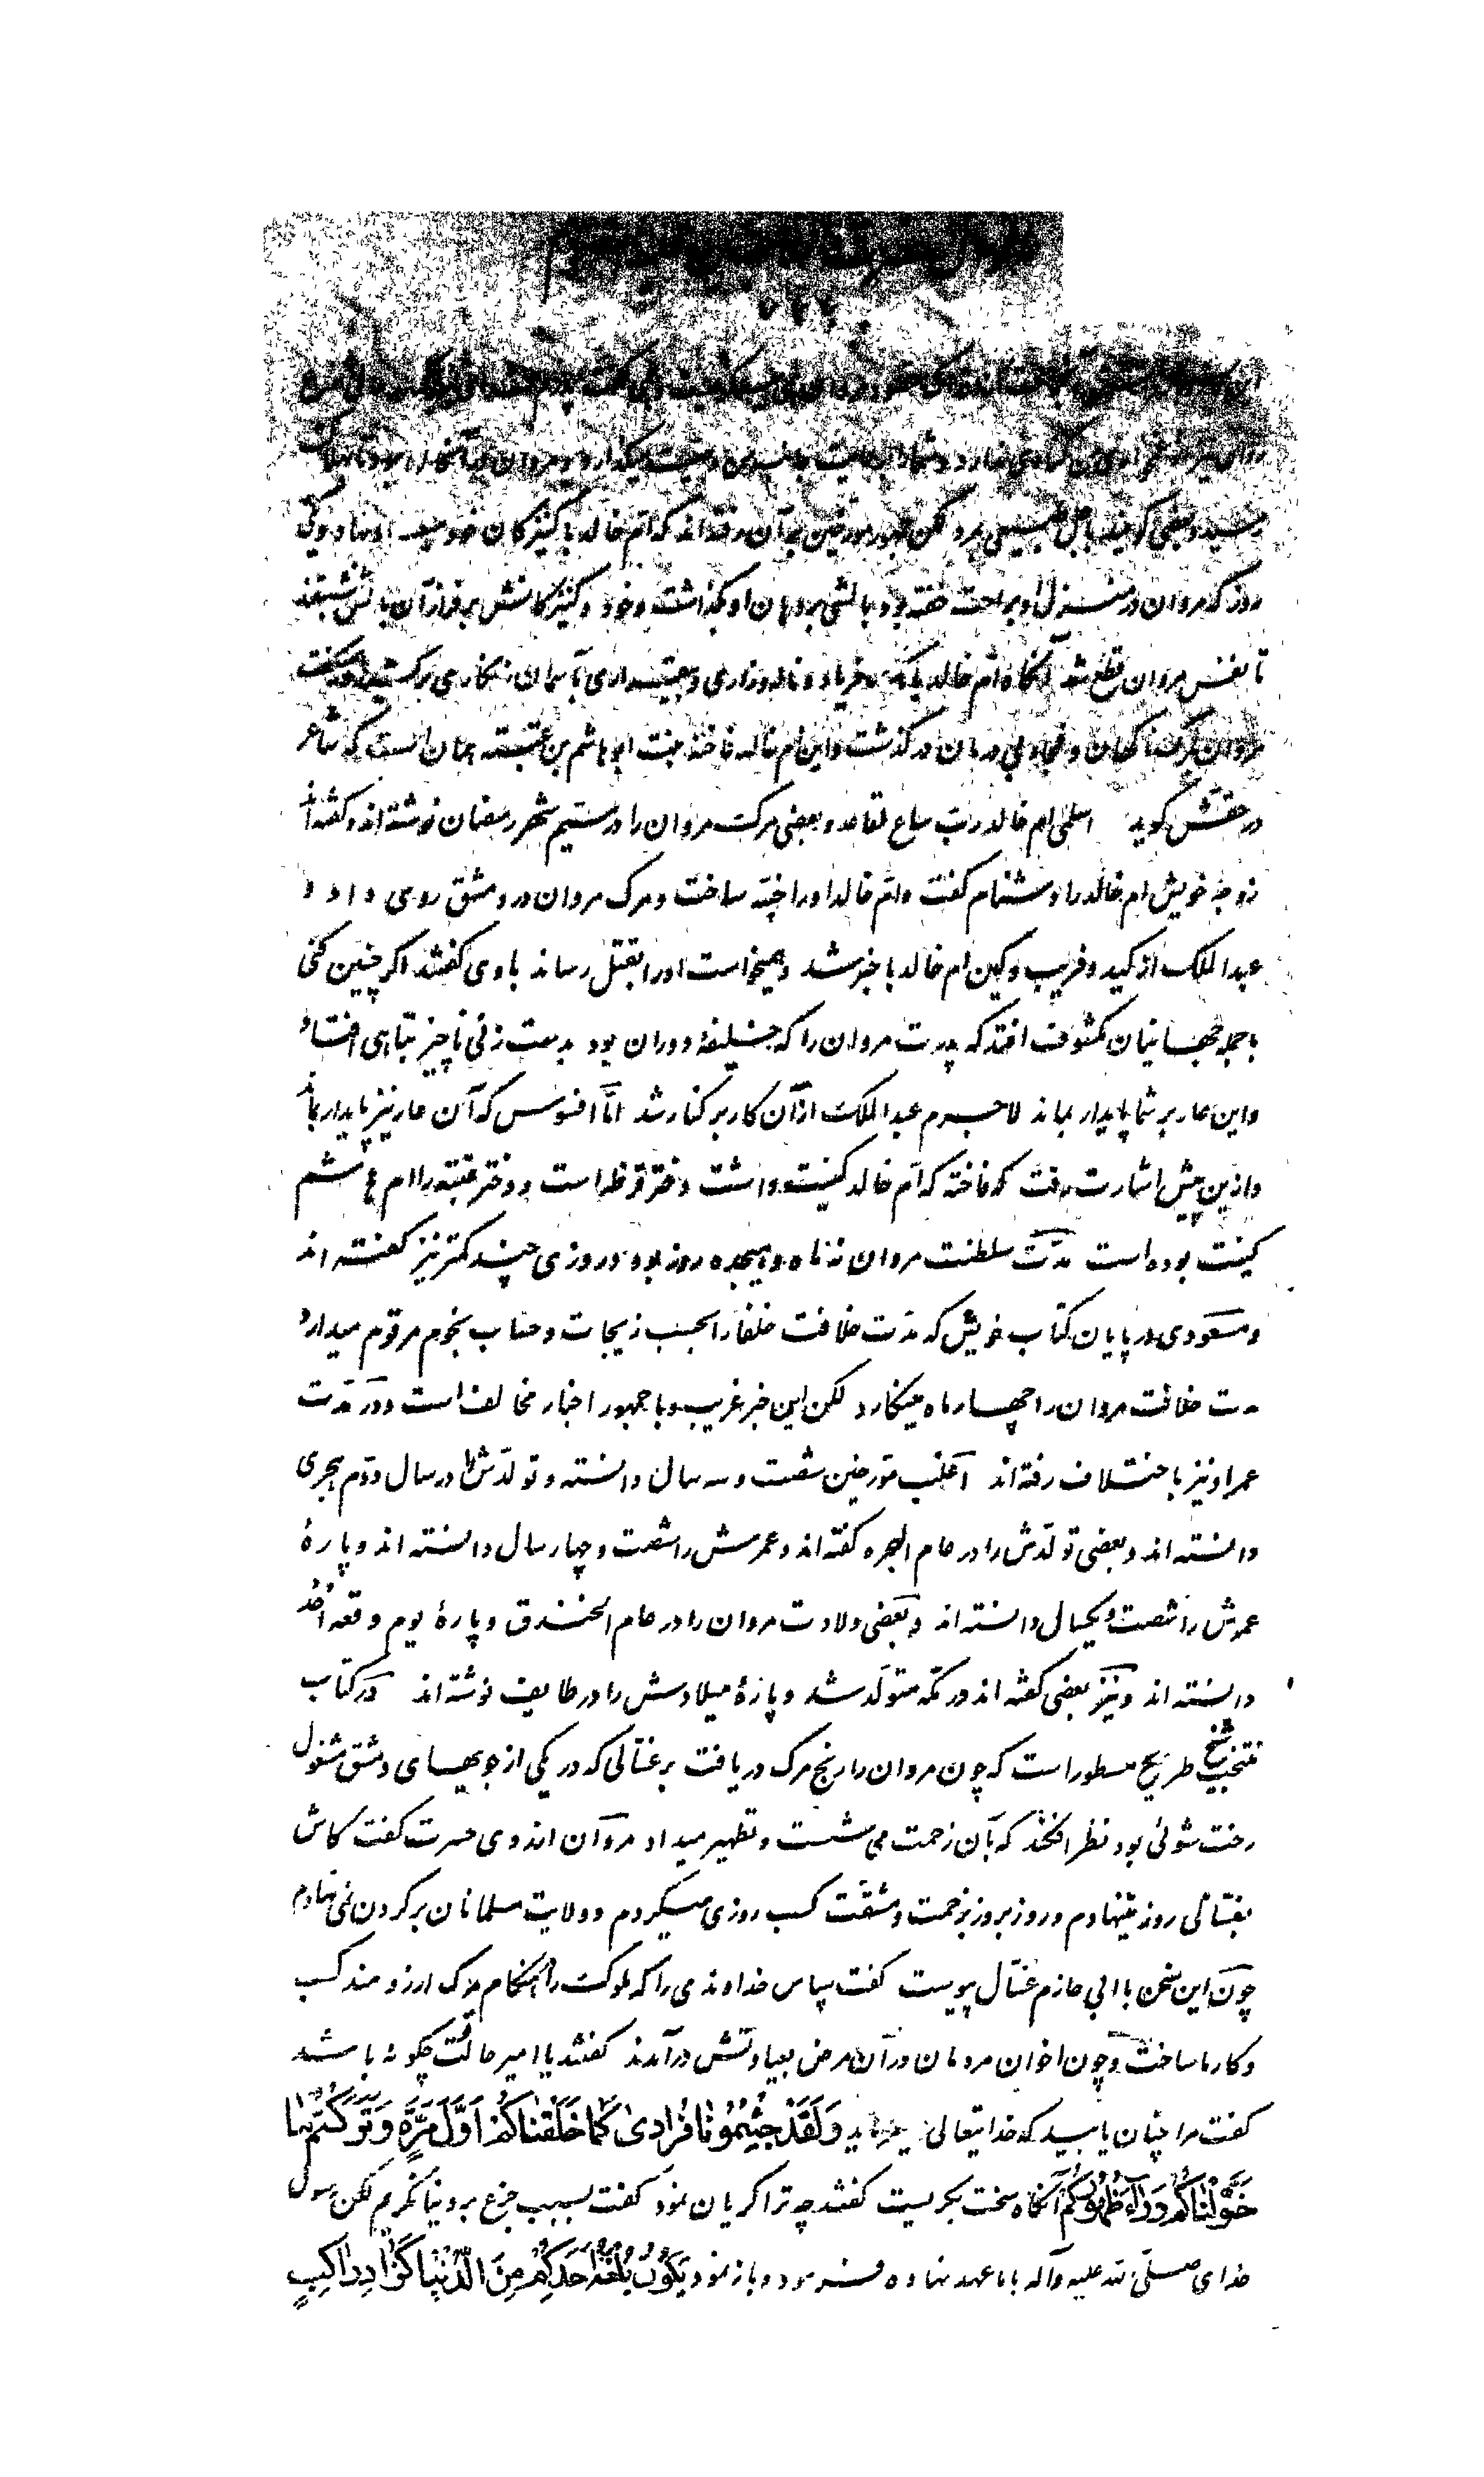 رسید و بعضی گویند باجل طبیعی بمرد لکن جمهور مورخین بر آن رفته‌اند که ام خالد با کنیزکان خود
روز که مروان در منزل او براحت خفته بود بالشی بر دهان او بگذاشت و خود و کنیزکانش بر فراز آن بالش بنشستند
تا نفس مروان قطع شد آنگاه ام خالد و فریاد و ناله و زاری و بآسمان
مروان بمرگ ناگهان در گذشت و این ام خالد فاخته بنت ابو هاشم بن عتبه همان است که شاعر
در حقش گوید اسلمی ام خالد رب ساع لقاعد و بعضی مرگ مروان را در سیم شهر رمضان نوشته‌اند و گفته‌اند
زوجه خویش ام خالد را دشنام گفت و ام خالد او را خپه ساخت و مرگ مروان در دمشق روی داد و
عبدالملک از کید و فریب و کین ام خالد با خبر شد و همیخواست او را بقتل رساند با وی گفتند اگر چنین کنی
با جمله جهانیان مکشوف افتد که پدرت مروان را که خلیفهٔ دوران بود بدست زنی ناچیز تباهی افتاد
و این عار بر شما پایدار بماند لاجرم عبدالملک از آن کار بر کنار شد اما افسوس که آن عار نیز پایدار بماند
و ازین پیش اشارت رفت که فاخته که ام خالد کنیت داشت دختر قرظه است و دختر عتبه را ام هاشم
کنیت بوده است مدت سلطنت مروان نه ماه و هیجده روز بود و روزی چند کمتر نیز گفته اند
و مسعودی در پایان کتاب خویش که مدت خلافت خلفا را بحسب زیجات و حساب نجوم مرقوم میدارد
مدت خلافت مروان را چهار ماه مینگارد لکن این خبر غریب و با جمهور اخبار مخالف است و در مدت
عمر او نیز باختلاف رفته اند اغلب مورخین شصت و سه سال دانسته و تولدش را در سال دوم هجری
دانسته اند و بعضی تولدش را در عام الهجره گفته اند و عمرش را شصت و چهار سال دانسته اند و پارهٔ
عمرش را شصت و یکسال دانسته اند و بعضی ولادت مروان را در عام الخندق و پارهٔ یوم وقعه احد
دانسته اند و نیز بعضی گفته اند در مکه متولد شد و پارهٔ میلادش را در طایف نوشته اند در کتاب
منتخب شیخ طریح مسطور است که چون مروان را رنج مرگ دریافت بر غسّالی که در یکی از جویهای دمشق مشغول
رخت شوئی بود نظر افکند که بآن زحمت می شست و تطهیر میداد مروان از روی حسرت گفت کاش
بغسّالی روز مینهادم و روز بروز بزحمت و مشقت کسب روزی میکردم و ولایت مسلمانان بر گردن نمی نهادم
چون این سخن با ابی حازم غسّال پیوست گفت سپاس خداوندی را که ملوک را هنگام مرگ آرزومند کسب
و کار ما ساخت و چون اخوان مروان در آن مرض بعیادتش در آمدند گفتند یا امیر حالت چگونه باشد
گفت مرا چنان یابید که خدایتعالی میفرماید وَلَقَدْ جِئْتُمُونَا فُرَادَىٰ كَمَا خَلَقْنَاكُمْ أَوَّلَ مَرَّةٍ وَتَرَكْتُمْ مَا
خَوَّلْنَاكُمْ وَرَاءَ ظُهُورِكُمْ آنگاه سخت بگریست گفتند چه ترا گریان نمود گفت بسبب جزع بر دنیا نگریم لکن رسول
خدای صلی الله علیه و آله با ما عهد نهاده فرمود و باز نمود يَكُونُ بُلْغَةُ أَحَدِكُمْ مِنَ الدُّنْيَا كَزَادِ رَاكِبٍ